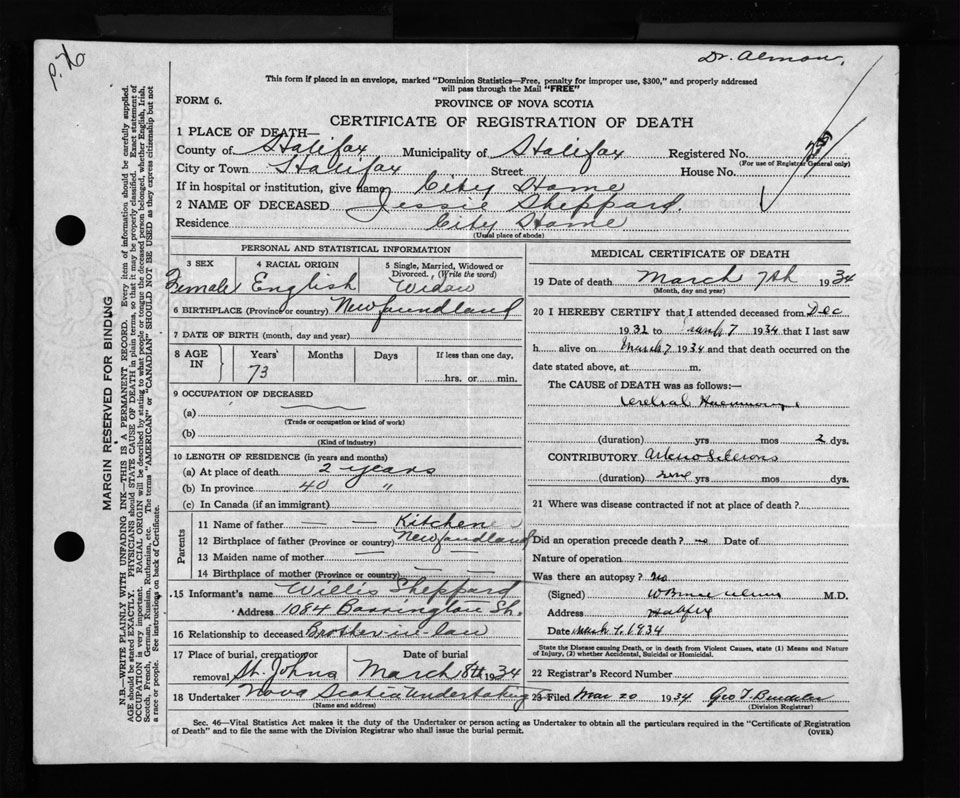 P. 76
Dr. Almon.
This form if placed in an envelope, marked "Dominion Statistics—Free, penalty for improper use, $300," and properly addressed
will pass through the Mail "FREE"
FORM 6.
PROVINCE OF NOVA SCOTIA
CERTIFICATE OF REGISTRATION OF DEATH
1 PLACE OF DEATH—
County of Halifax Municipality of Halifax Registered No.
(For use of Registrar General only)
City or Town Halifax Street House No.
If in hospital or institution, give name City Home
2 NAME OF DECEASED Jessie Sheppard.
Residence City Home
(Usual place of abode)
PERSONAL AND STATISTICAL INFORMATION
3 SEX 4 RACIAL ORIGIN 5 Single, Married, Widowed or
Divorced, (Write the word)
Female English Widow
6 BIRTHPLACE (Province or country) Newfoundland
7 DATE OF BIRTH (month, day and year)
8 AGE IN Years Months Days If less than one day,
73 hrs. or min.
9 OCCUPATION OF DECEASED
(a)
(Trade or occupation or kind of work)
(b)
(Kind of industry)
10 LENGTH OF RESIDENCE (in years and months)
(a) At place of death 2 years
(b) In province 40 "
(c) In Canada (if an immigrant)
Parents
11 Name of father — — Kitchen
12 Birthplace of father (Province or country) Newfoundland
13 Maiden name of mother — —
14 Birthplace of mother (Province or country) — —
15 Informant's name Willis Sheppard
Address 1084 Barrington St.
16 Relationship to deceased Brother-in-law
17 Place of burial, cremation or removal Date of burial
St. Johns March 8th 1934
18 Undertaker Nova Scotia Undertaking
(Name and address)
MEDICAL CERTIFICATE OF DEATH
19 Date of death March 7th 1934
(Month, day and year)
20 I HEREBY CERTIFY that I attended deceased from Dec
1931 to March 7 1934 that I last saw
h alive on March 7 1934 and that death occurred on the
date stated above, at m.
The CAUSE of DEATH was as follows:—
Cerebral Haemorrhage
(duration) yrs mos 2 dys.
CONTRIBUTORY Arterio Sclerosis
(duration) yrs mos dys.
21 Where was disease contracted if not at place of death?
Did an operation precede death? no Date of
Nature of operation
Was there an autopsy? no
(Signed) W Bruce Almon M.D.
Address Halifax
Date March 7, 1934
State the Disease causing Death, or in death from Violent Causes, state (1) Means and Nature
of Injury, (2) whether Accidental, Suicidal or Homicidal.
22 Registrar's Record Number
23 Filed Mar 20 1934 Geo T
(Division Registrar)
Sec. 46—Vital Statistics Act makes it the duty of the Undertaker or person acting as Undertaker to obtain all the particulars required in the "Certificate of Registration
of Death" and to file the same with the Division Registrar who shall issue the burial permit.
(OVER)
MARGIN RESERVED FOR BINDING
N.B.—WRITE PLAINLY WITH UNFADING INK—THIS IS A PERMANENT RECORD. Every item of information should be carefully supplied.
AGE should be stated EXACTLY. PHYSICIANS should STATE CAUSE OF DEATH in plain terms, so that it may be properly classified. Exact statement of
OCCUPATION is very important. RACIAL ORIGIN will be described by stating to what people or tongue the deceased person belonged, whether English, Irish,
Scotch, French, German, Russian, Ruthenian, etc. The terms "AMERICAN" or "CANADIAN" SHOULD NOT BE USED as they express citizenship but not
a race or people. See instructions on back of Certificate.